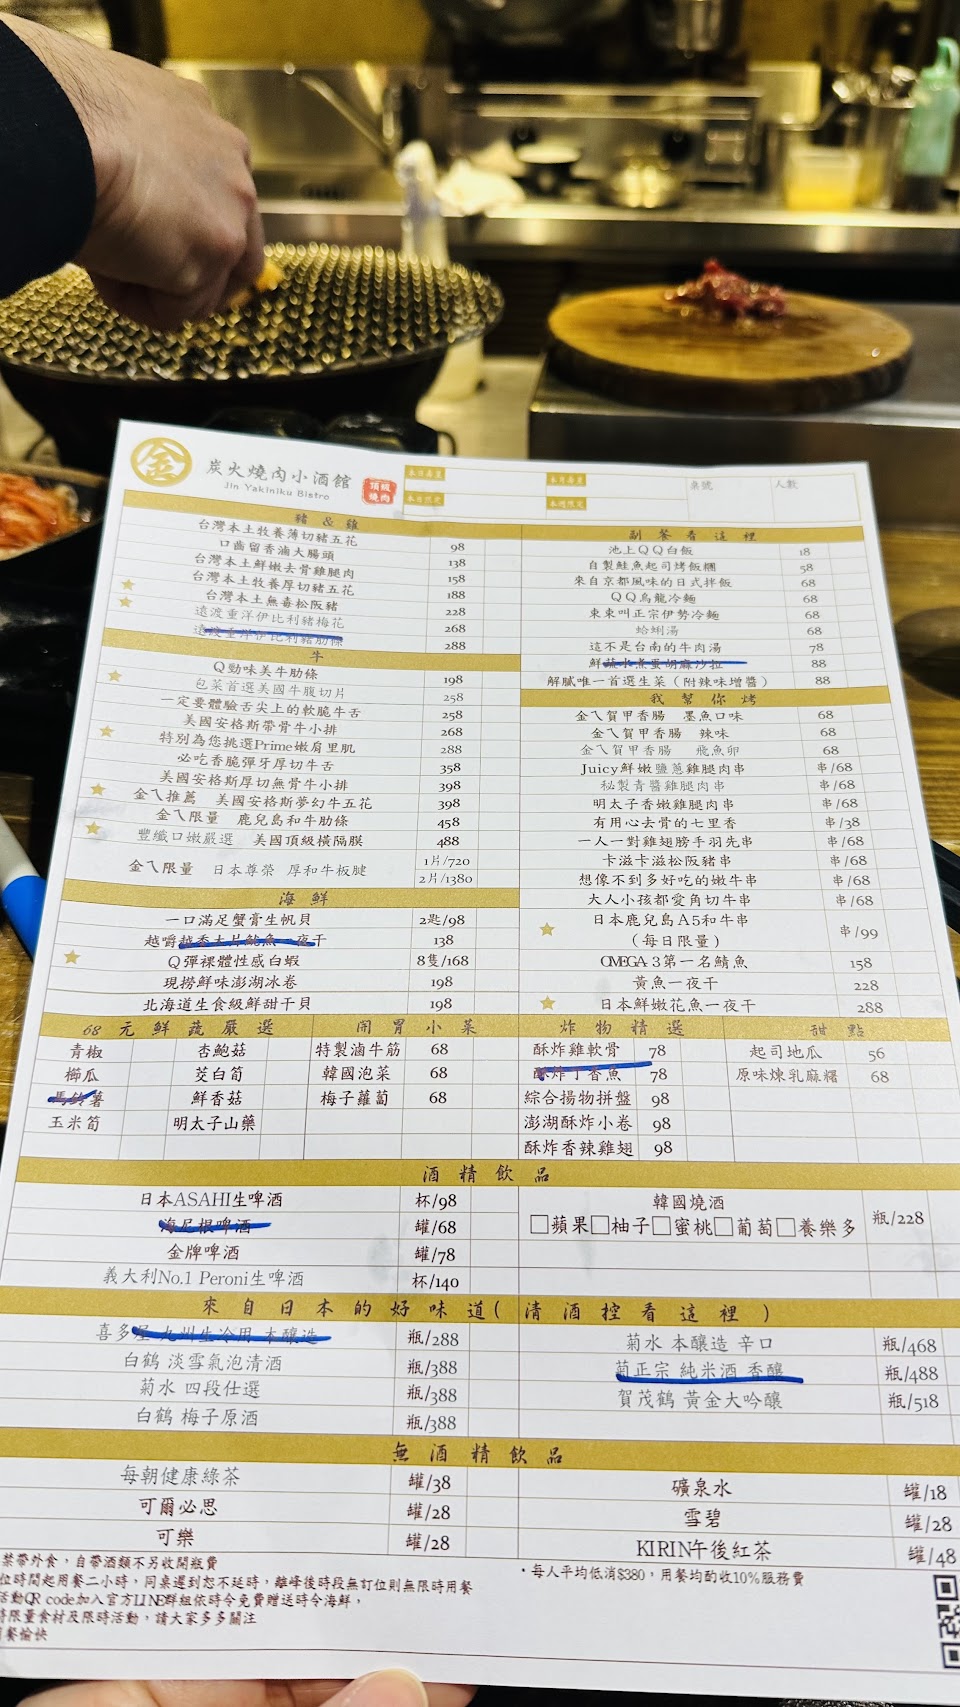 金 炭火燒肉小酒館
Jin Yakiniku Bistro
頂級
燒肉
桌號
人數
豬 & 雞
台灣本土牧養薄切豬五花 98
口齒留香滷大腸頭 138
台灣本土鮮嫩去骨雞腿肉 158
台灣本土牧養厚切豬五花 188
台灣本土無毒松阪豬 228
遠渡重洋伊比利豬梅花 268
遠渡重洋伊比利豬肋條 288
牛
Q勁味美牛肋條 198
包菜首選美國牛腹切片 258
一定要體驗舌尖上的軟脆牛舌 258
美國安格斯帶骨牛小排 268
特別為您挑選Prime嫩肩里肌 288
必吃香脆彈牙厚切牛舌 358
美國安格斯厚切無骨牛小排 398
金ㄟ推薦 美國安格斯夢幻牛五花 398
金ㄟ限量 鹿兒島和牛肋條 458
豐纖口嫩嚴選 美國頂級橫隔膜 488
金ㄟ限量 日本尊榮 厚和牛板腱 1片/720
2片/1380
海鮮
一口滿足蟹膏生帆貝 2匙/98
越嚼越香大片魷魚一夜干 138
Q彈裸體性感白蝦 8隻/168
現撈鮮味澎湖冰卷 198
北海道生食級鮮甜干貝 198
副餐看這裡
池上QQ白飯 18
自製鮭魚起司烤飯糰 58
來自京都風味的日式拌飯 68
QQ烏龍冷麵 68
東東叫正宗伊勢冷麵 68
蛤蜊湯 68
這不是台南的牛肉湯 78
鮮蔬水煮蛋胡麻沙拉 88
解膩唯一首選生菜(附辣味增醬) 88
我幫你烤
金ㄟ賀甲香腸 墨魚口味 68
金ㄟ賀甲香腸 辣味 68
金ㄟ賀甲香腸 飛魚卵 68
Juicy鮮嫩鹽蔥雞腿肉串 串/68
秘製青醬雞腿肉串 串/68
明太子香嫩雞腿肉串 串/68
有用心去骨的七里香 串/38
一人一對雞翅膀手羽先串 串/68
卡滋卡滋松阪豬串 串/68
想像不到多好吃的嫩牛串 串/68
大人小孩都愛角切牛串 串/68
日本鹿兒島A5和牛串
(每日限量) 串/99
OMEGA-3第一名鯖魚 158
黃魚一夜干 228
日本鮮嫩花魚一夜干 288
68元鮮蔬嚴選
青椒 杏鮑菇
櫛瓜 茭白筍
馬鈴薯 鮮香菇
玉米筍 明太子山藥
開胃小菜
特製滷牛筋 68
韓國泡菜 68
梅子蘿蔔 68
炸物精選
酥炸雞軟骨 78
酥炸丁香魚 78
綜合揚物拼盤 98
澎湖酥炸小卷 98
酥炸香辣雞翅 98
甜點
起司地瓜 56
原味煉乳麻糬 68
酒精飲品
日本ASAHI生啤酒 杯/98
海尼根啤酒 罐/68
金牌啤酒 罐/78
義大利No.1 Peroni生啤酒 杯/140
韓國燒酒
□蘋果□柚子□蜜桃□葡萄□養樂多 瓶/228
來自日本的好味道(清酒控看這裡)
喜多屋 九州生冷用 本釀造 瓶/288
白鶴 淡雪氣泡清酒 瓶/388
菊水 四段仕選 瓶/388
白鶴 梅子原酒 瓶/388
菊水 本釀造 辛口 瓶/468
菊正宗 純米酒 香釀 瓶/488
賀茂鶴 黃金大吟釀 瓶/518
無酒精飲品
每朝健康綠茶 罐/38
可爾必思 罐/28
可樂 罐/28
礦泉水 罐/18
雪碧 罐/28
KIRIN午後紅茶 罐/48
禁帶外食,自帶酒類不另收開瓶費
位時間起用餐二小時,同桌遲到恕不延時,離峰後時段無訂位則無限時用餐
活動QR code加入官方LINE群組依時令免費贈送時令海鮮,
時限量食材及限時活動,請大家多多關注
用餐愉快
・每人平均低消$380,用餐均酌收10%服務費